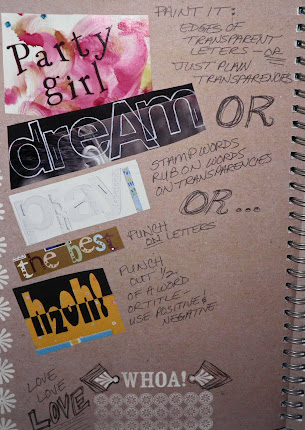 PAINT IT:
EDGES OF
TRANSPARENT
LETTERS - OR
JUST PLAIN
TRANSPARENCIES
Party
girl
OR
dreAm
STAMP WORDS
RUB ON WORDS
ON TRANSPARENCIES
play
OR...
PUNCH
ON LETTERS
the best
PUNCH
OUT 1/2
OF A WORD
OR TITLE -
USE POSITIVE &
NEGATIVE
h2oh!
WHOA!
LOVE
LOVE
LOVE